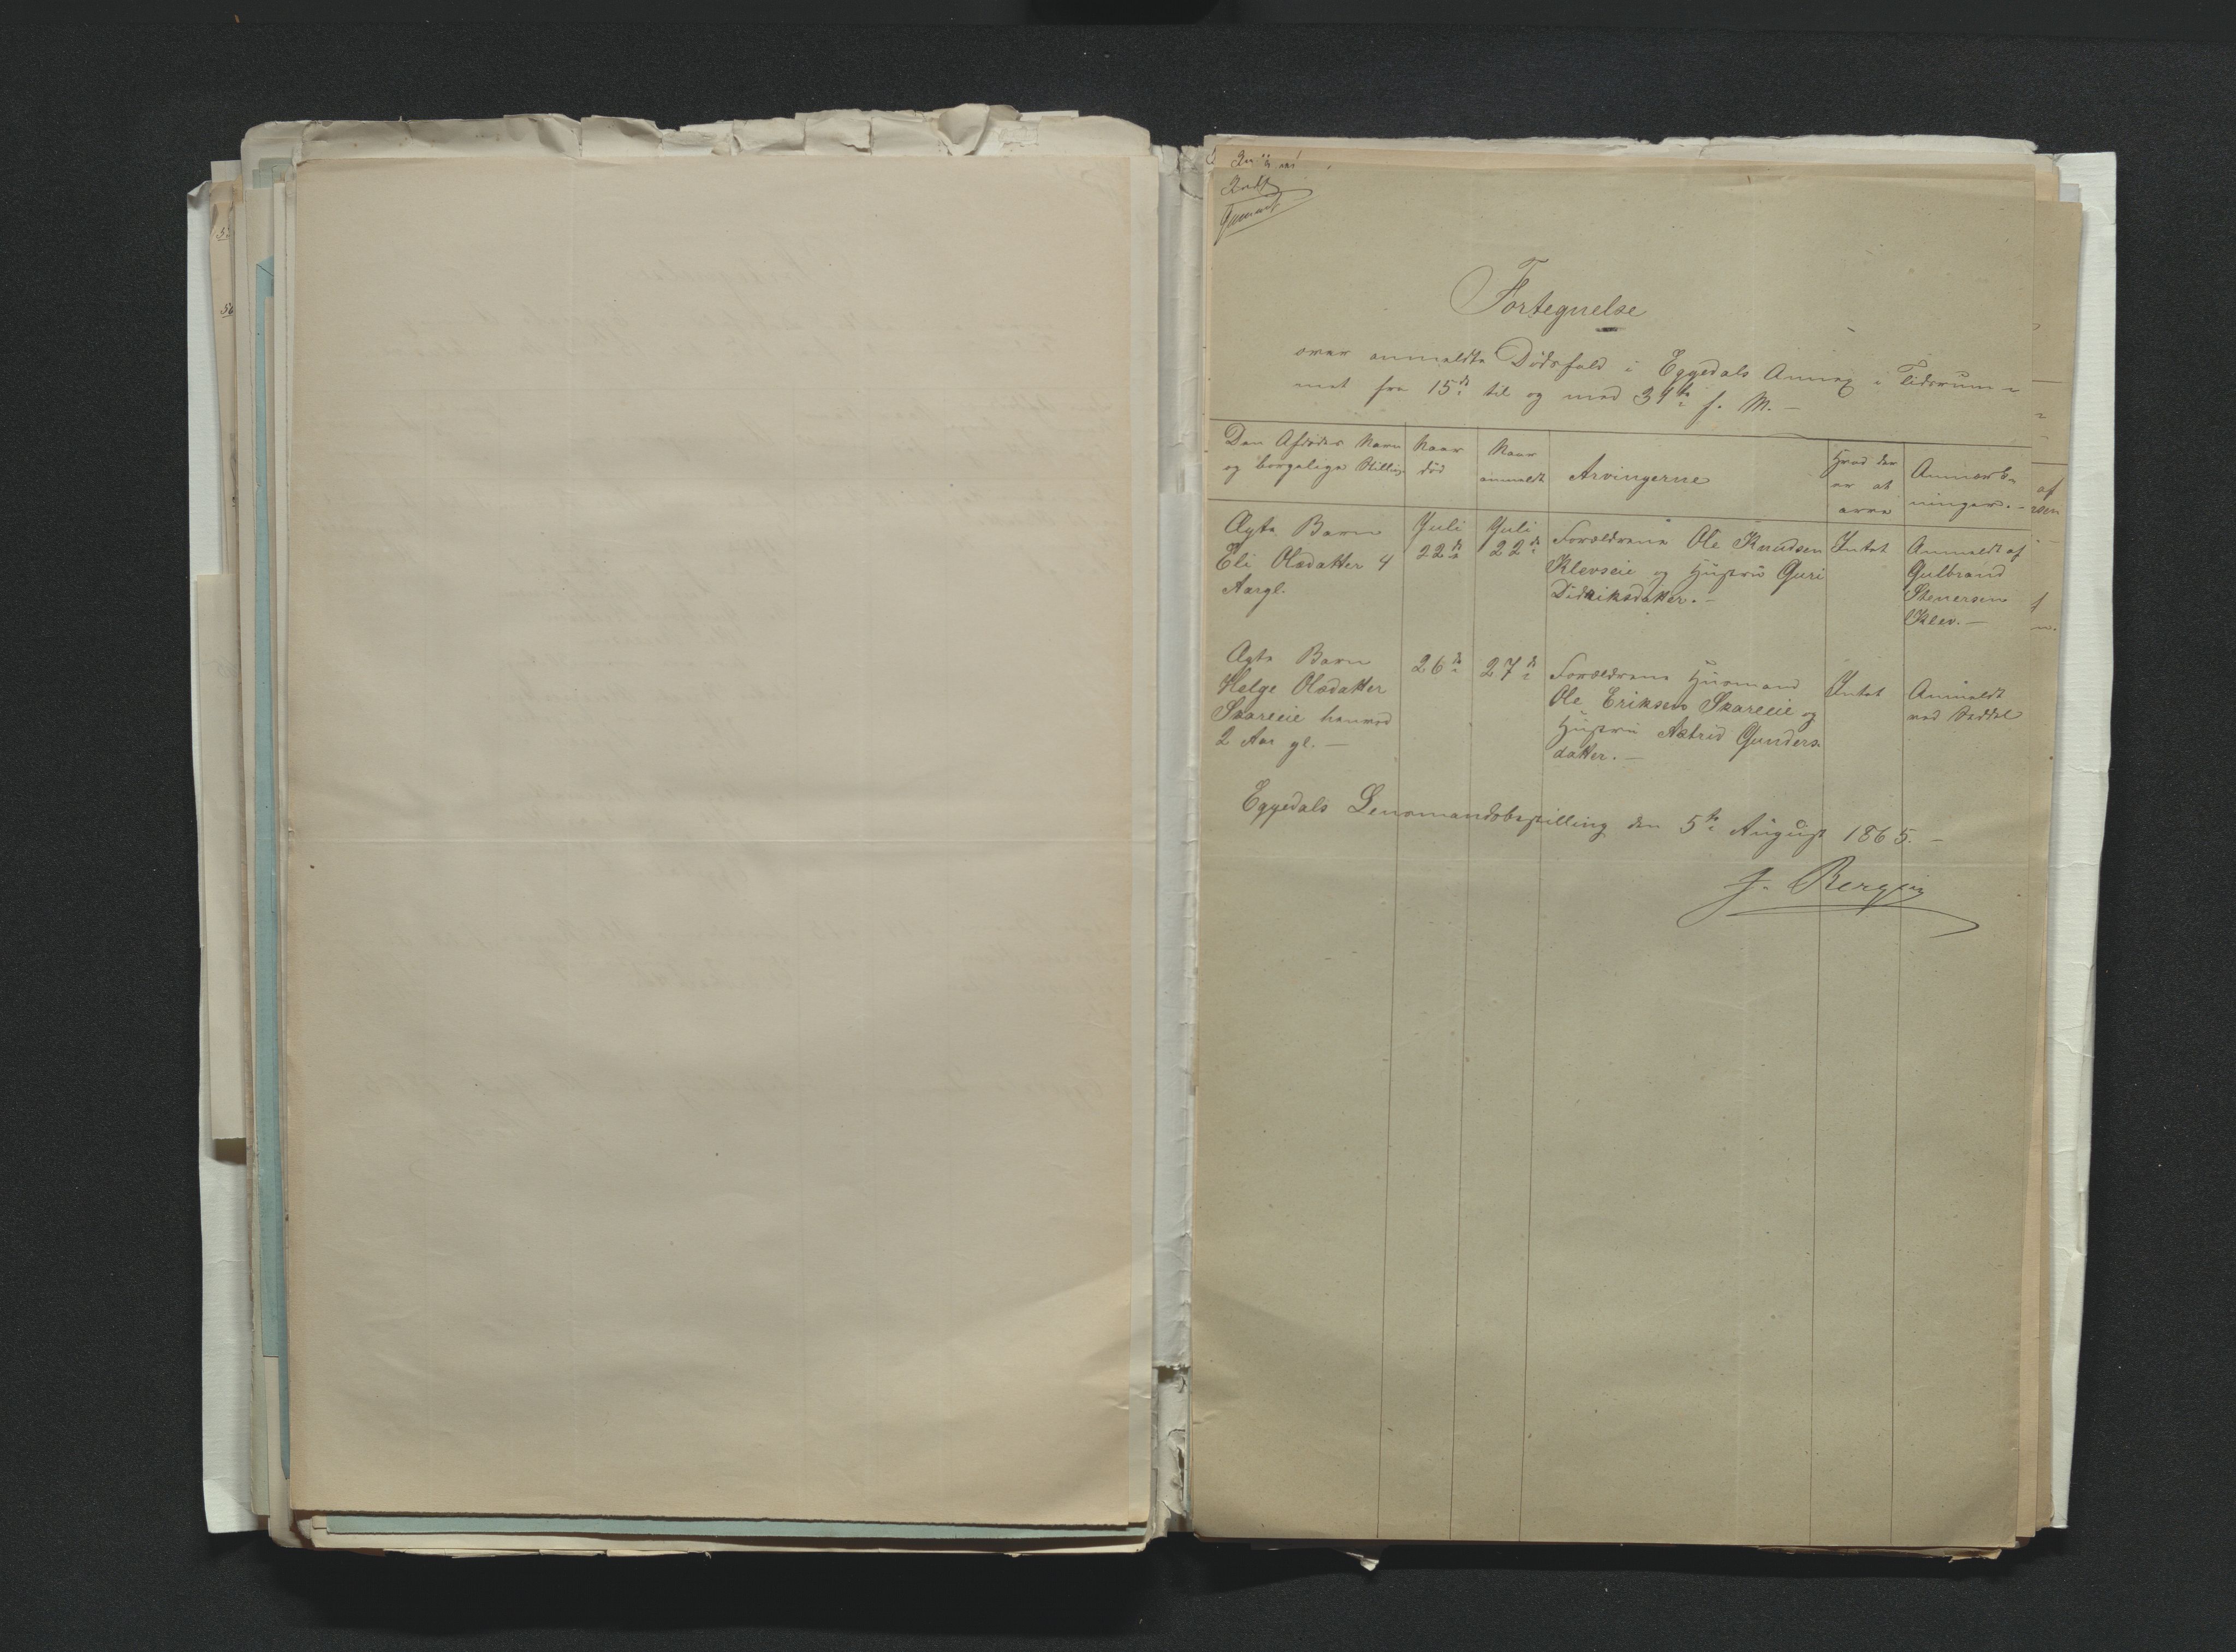 Fortegnelse
over anmeldte Dødsfald i Eggedals Annex i Tidsrum-
met fra 15de til og med 31te f. M. -
Den Afdødes Navn
og borgelige Stilling
Naar
død
Naar
anmeldt
Arvingerne
Hvad der
er at
arve
Anmærk-
ninger. -
Ægte Barn
Eli Olsdatter 4
Aargl.
Juli
22de
Juli
22de
Forældrene Ole Knudsen
Klevseie og Hustru Guri
Didriksdatter. -
Intet
Anmeldt af
Gulbrand
Stenersen
Klev. -
Ægte Barn
Helge Olsdatter
Skareeie henved
2 Aar gl. -
26de
27de
Forældrene Husmand
Ole Eriksen Skareeie og
Hustru Astrid Gunders-
datter. -
Intet
Anmeldt
ved Seddel
Eggedals Lensmandsbestilling den 5te August 1865. -
J. Berg